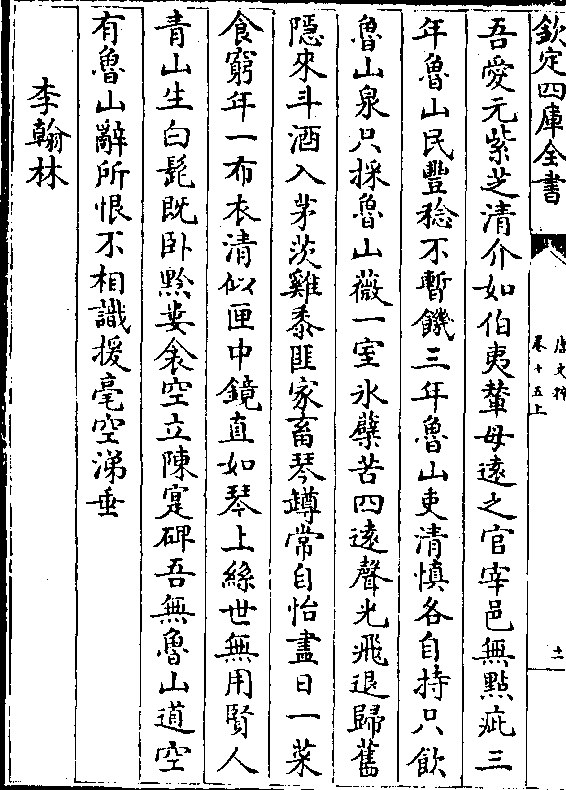 欽定四庫全書
唐文粹
卷十五上
十一
吾愛元紫芝清介如伯夷輦母遠之官宰邑無㸃疵三
年魯山民豐稔不暫饑三年魯山吏清慎各自持只飲
魯山泉只採魯山薇一室氷檗苦四遠聲光飛退歸舊
隱來斗酒入茅茨雞黍匪家畜琴罇常自怡盡日一菜
食窮年一布衣清似匣中鏡直如琴上絲世無用賢人
青山生白髭既卧黔婁衾空立陳寔碑吾無魯山道空
有魯山辭所恨不相識援毫空涕垂
李翰林